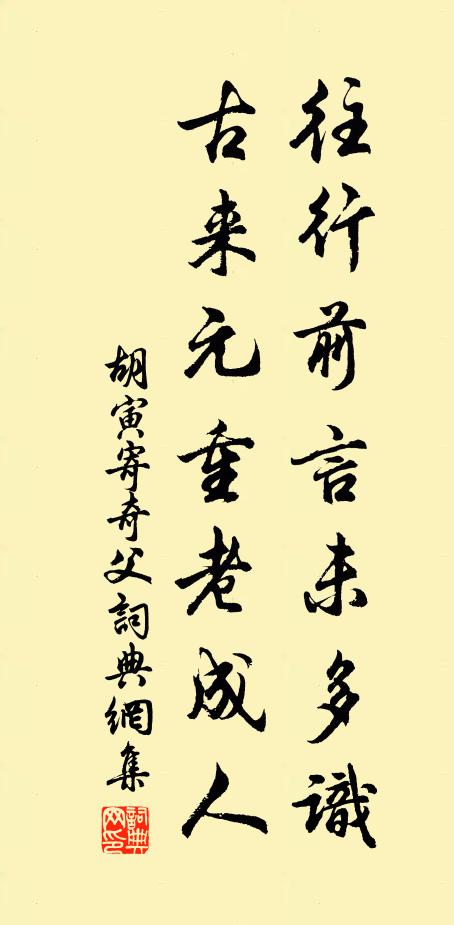 往行前言未多識
古来元重老成人
胡寅寄奇父詞典網集
詞典网印